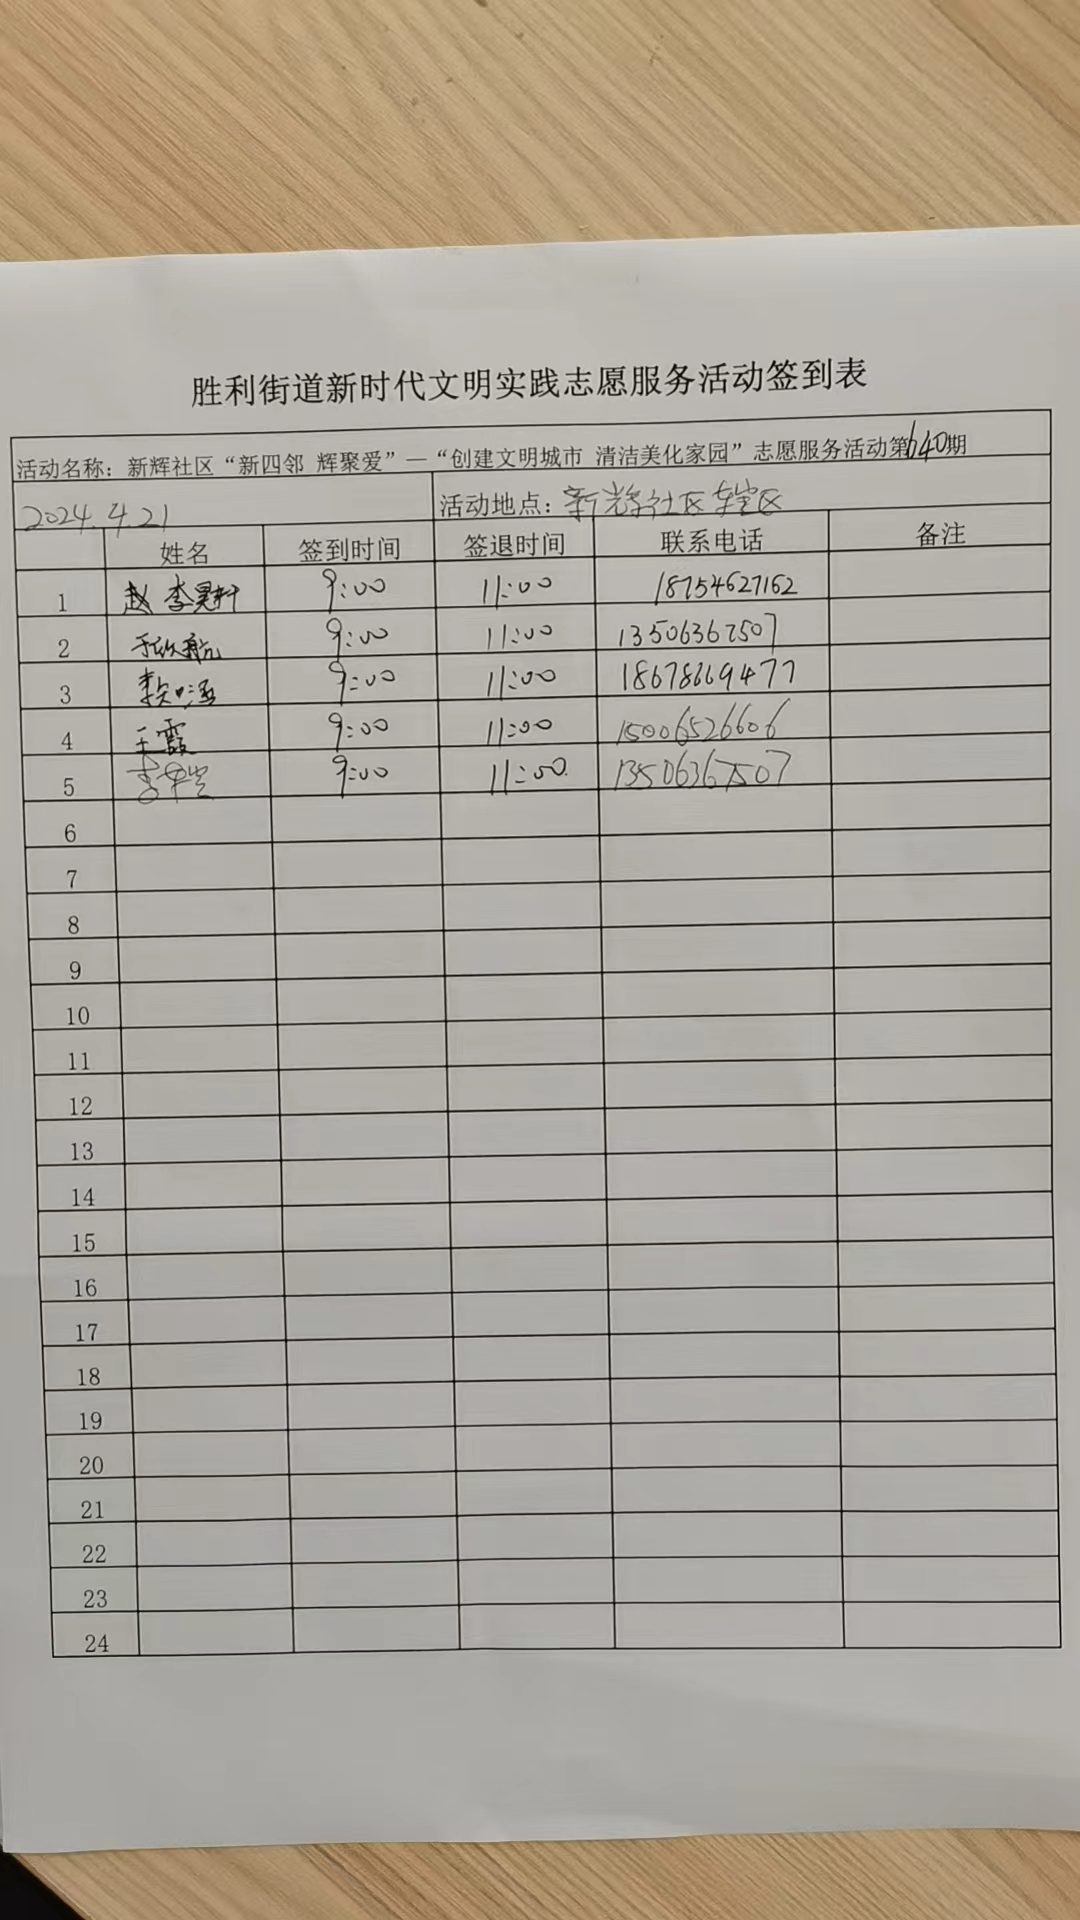 胜利街道新时代文明实践志愿服务活动签到表
活动名称：新辉社区“新四邻 辉聚爱”—“创建文明城市 清洁美化家园”志愿服务活动第640期
2024.4.21 活动地点：新辉社区辖区
姓名 签到时间 签退时间 联系电话 备注
1 赵李昊轩 9:00 11:00 18754627162
2 于欣航 9:00 11:00 13506367507
3 9:00 11:00 18678669477
4 王霞 9:00 11:00 15006526606
5 9:00 11:00 13506367507
6
7
8
9
10
11
12
13
14
15
16
17
18
19
20
21
22
23
24